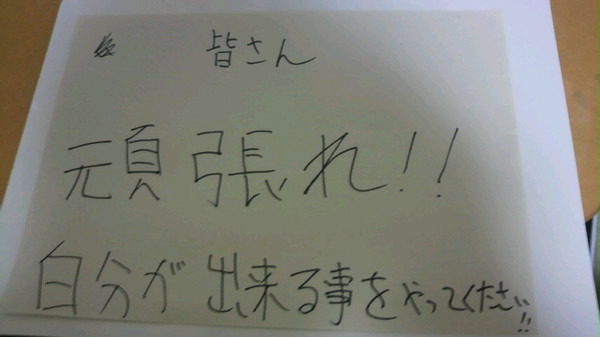 皆さん
頑張れ!!
自分が出来る事をやってください!!